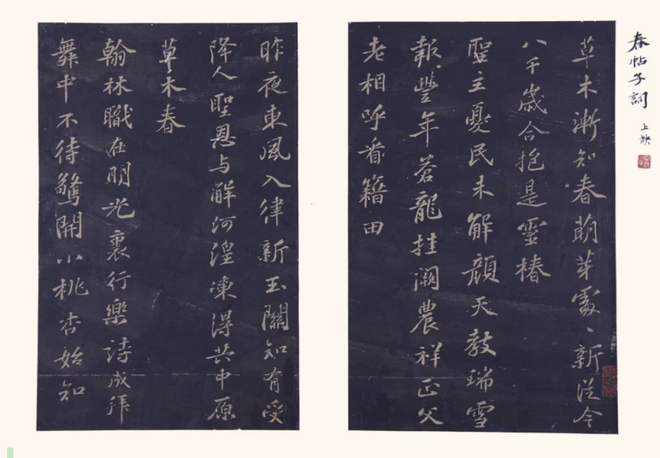 春帖子詞 上缺
草木漸知春萌芽處〻新從今
八千歲合抱是靈椿
聖主憂民未解顏天教瑞雪
報豐年蒼龍挂闕農祥正父
老相呼看籍田
昨夜東風入律新玉關知有受
降人聖恩与解河湟凍得共中原
草木春
翰林職在明光裏行樂詩成拜
舞中不待驚開小桃杏始知